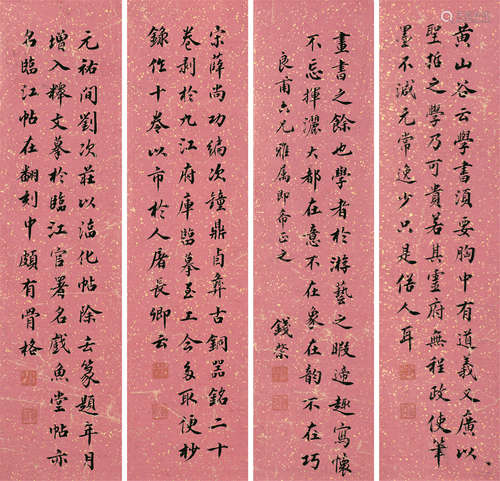 黄山谷云學書須要胸中有道義又廣以
聖哲之學乃可貴若其靈府無程政使筆
墨不減元常逸少只是俗人耳
畫書之餘也學者於游藝之暇適趣寫懷
不忘揮灑大都在意不在象在韵不在巧
良甫六兄雅属即希正之
錢棨
宗薛尚功編次鐘鼎卣彝古銅器銘二十
卷刻於九江府庫臨摹至工今多取便抄
錄作十卷以市於人屠長卿云
元祐間劉次莊以淳化帖除去篆題年月
增入釋文摹於臨江官署名戲魚堂帖亦
名臨江帖在翻刻中頗有骨格